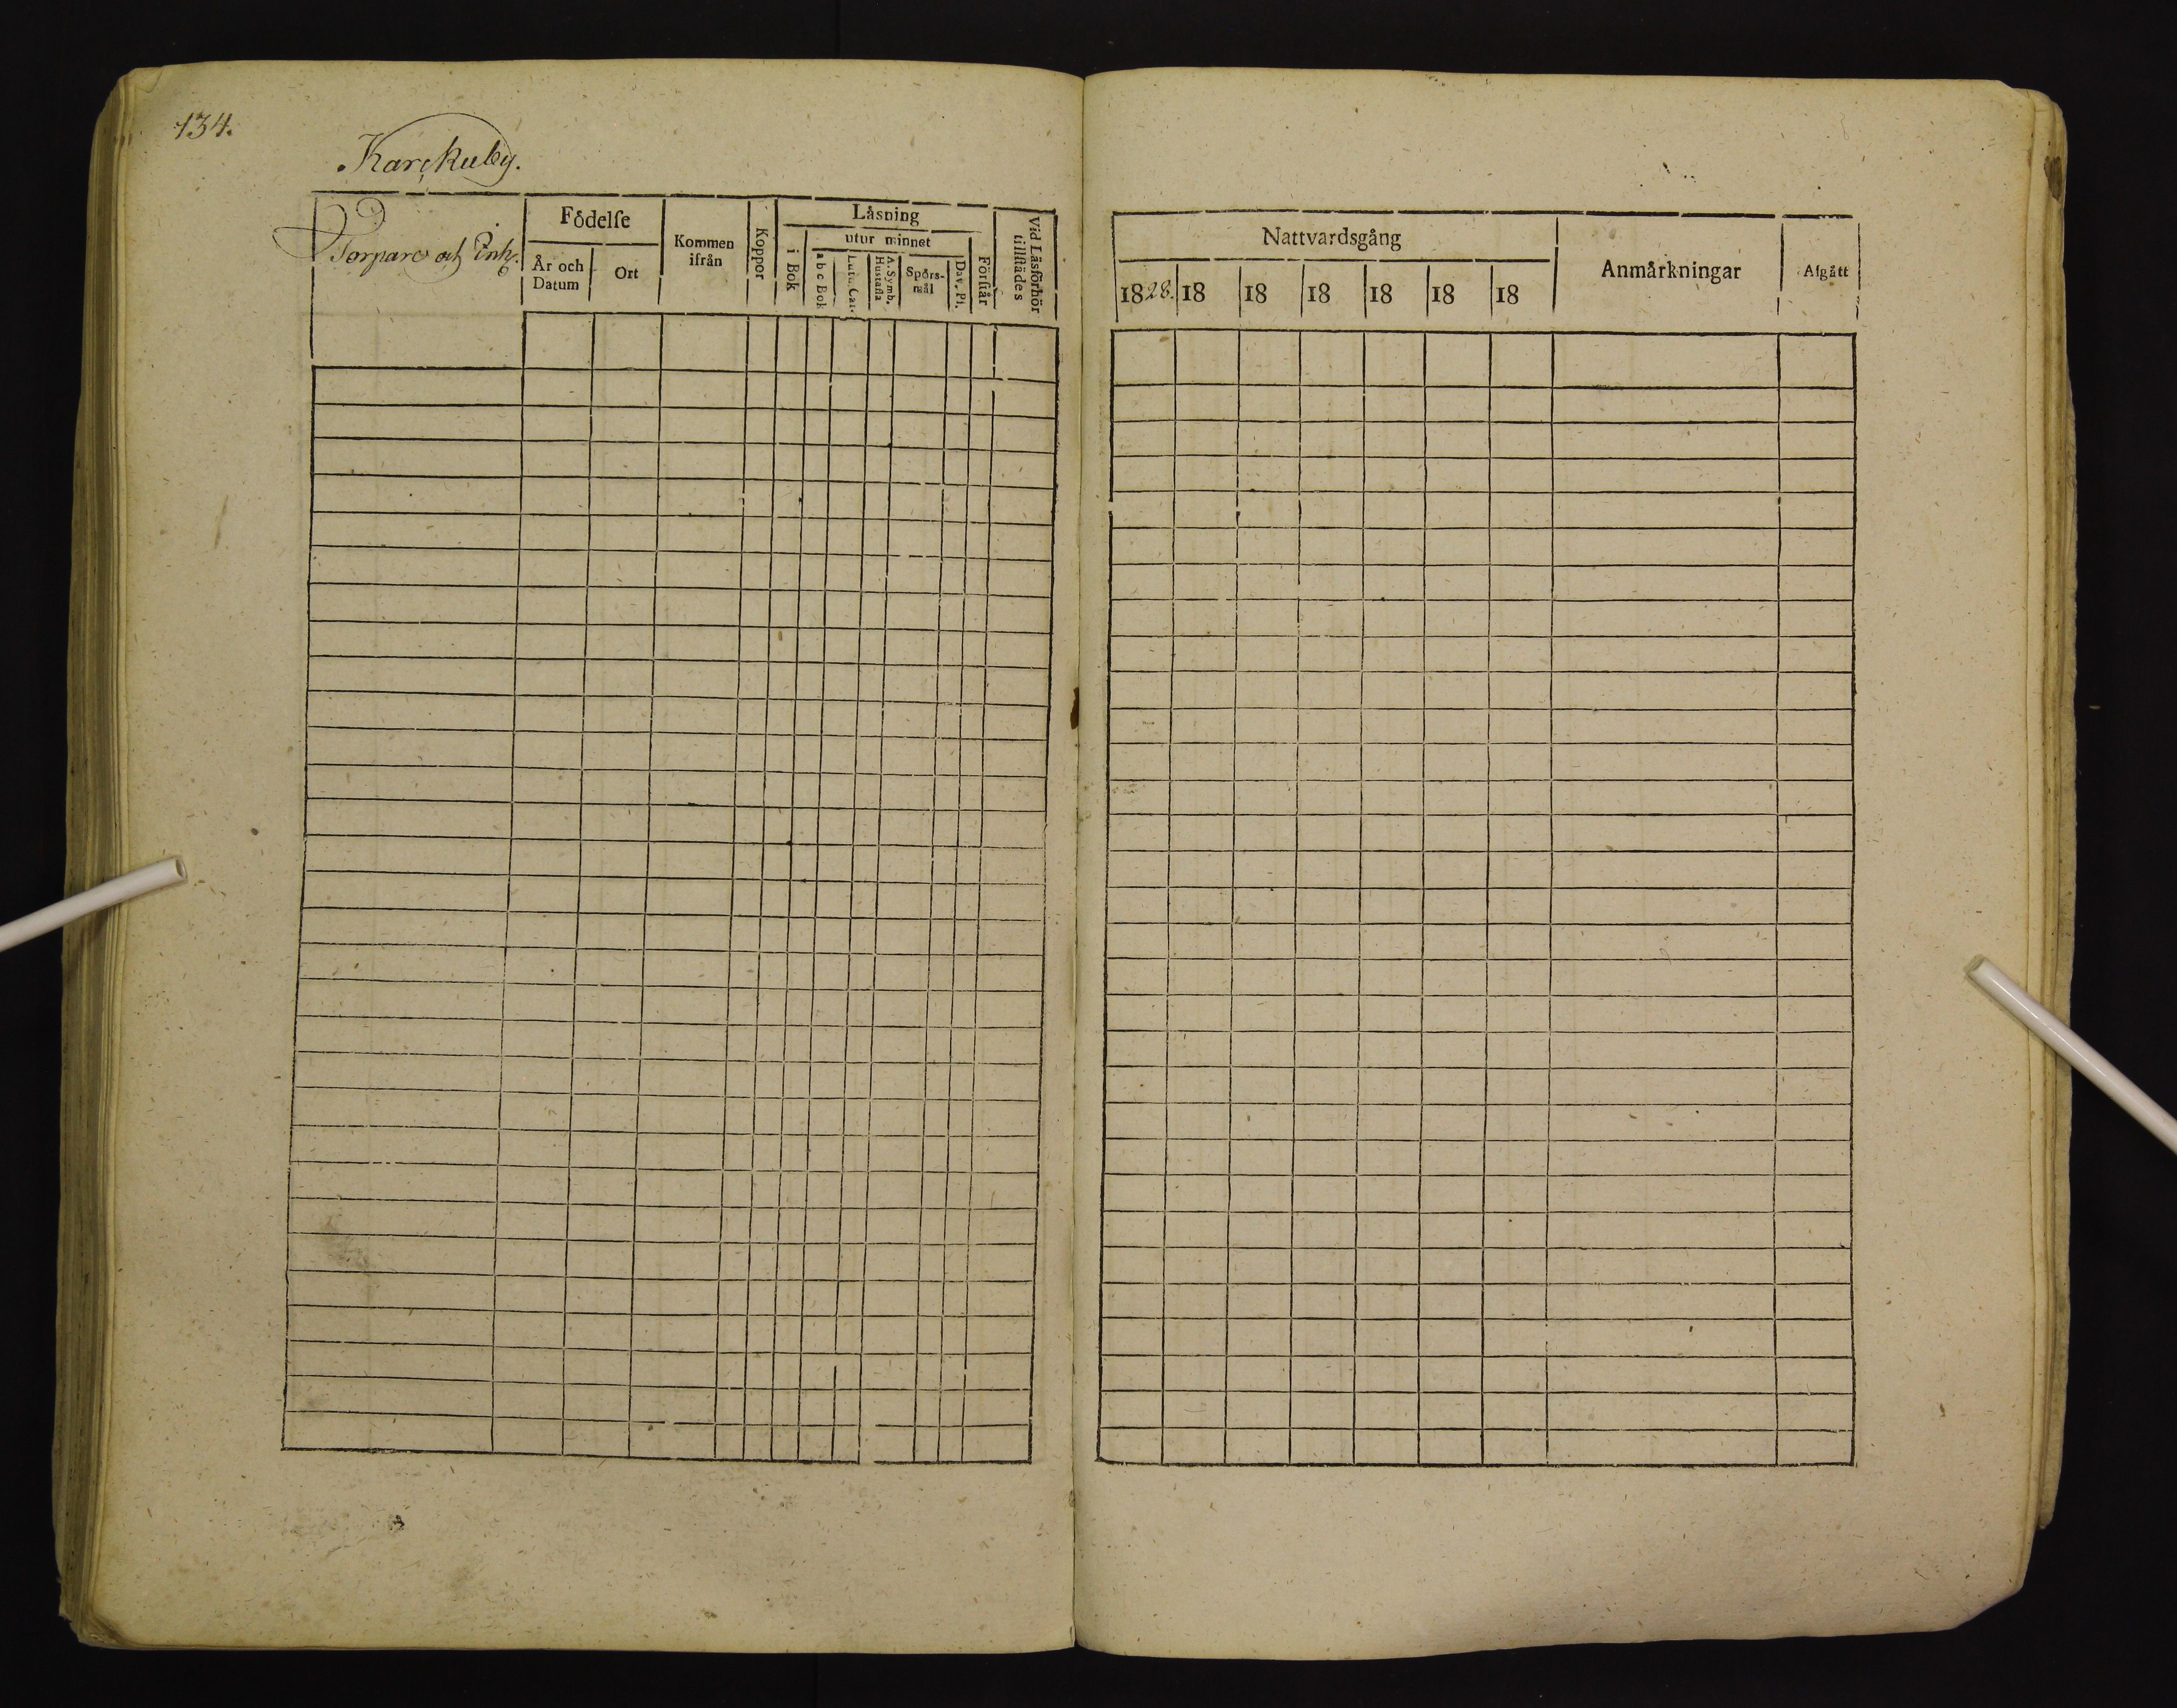 134.
Karskuby.
Torpare och Enk.
Födelse
År och Datum
Ort
Kommen ifrån
Koppor
Läsning
i Bok
utur minnet
a b c Bok
Luth. Cat.
A. Symb. Hustafla
Spörs-mål
Dav. Ps.
Förstår
Vid Läsförhör tillstädes
Nattvardsgång
1828. 18 18 18 18 18 18
Anmärkningar
Afgått